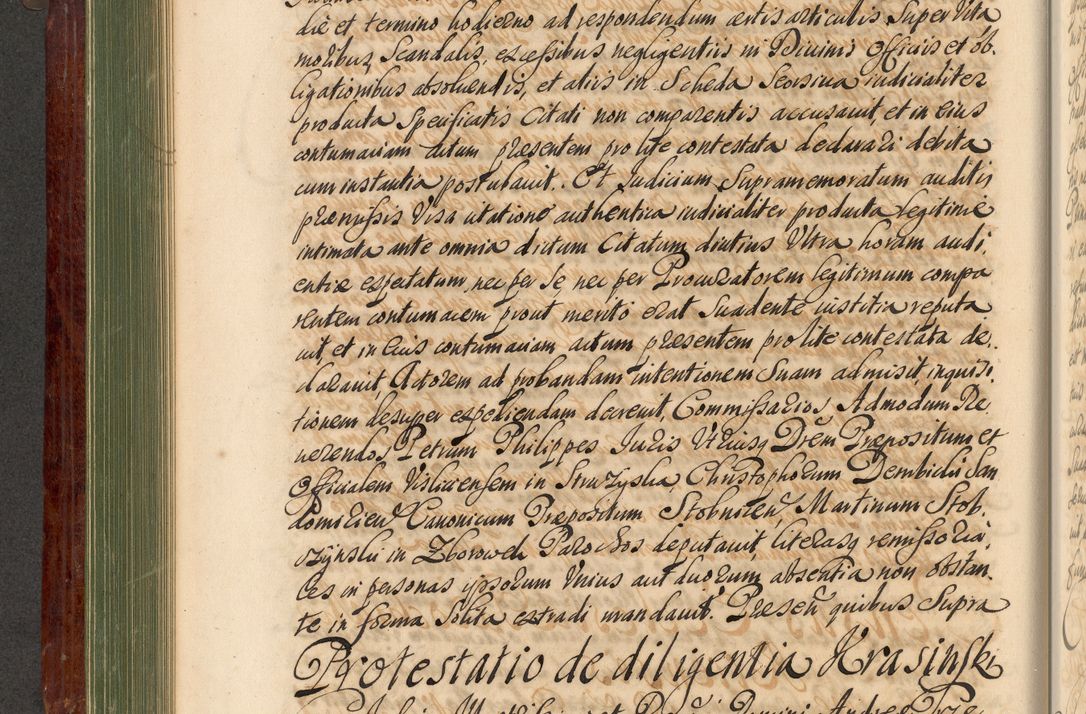 die et termino hodierno ad respondendum certis articulis super vita
moribus scandalis, excessibus negligentiis in Divinis officiis et ob-
ligationibus absoluendis, et aliis in Scheda seorsiua iudicialiter
producta specificatis Citati non comparentis accusauit, et in eius
contumaciam actum præsentem pro lite contestata declarari debita
cum instantia postulauit. Et Judicium supramemoratum auditis
præmissis visa citatione authentica iudicialiter producta legitime
intimata ante omnia dictum Citatum diutius Ultra horam audi-
entiæ expectatum, nec per se nec per Procuratorem legitimum compa
rentem contumacem prout merito erat suadente iustitia reputa
uit, et in Eius contumaciam actum præsentem pro lite contestata de-
clarauit, Actorem ad probandam intentionem suam admisit, inquisi-
tionem desuper expediendam decreuit, Commissarios Admodum Re
uerendos Petrum Philippes Juris Utriusq Drem Præpositum et
Officialem Visliciensem in Strozyska, Christophorum Dembicki San
domirien Canonicum Præpositum Stobnicen Martinum Stob-
czynski in Zborowek Parochos deputauit, literasq remissoria-
les in personas ipsorum Unius aut duorum absentia non obstan-
te in forma solita extradi mandauit. Presen quibus supra
Protestatio de diligentia Krasinski